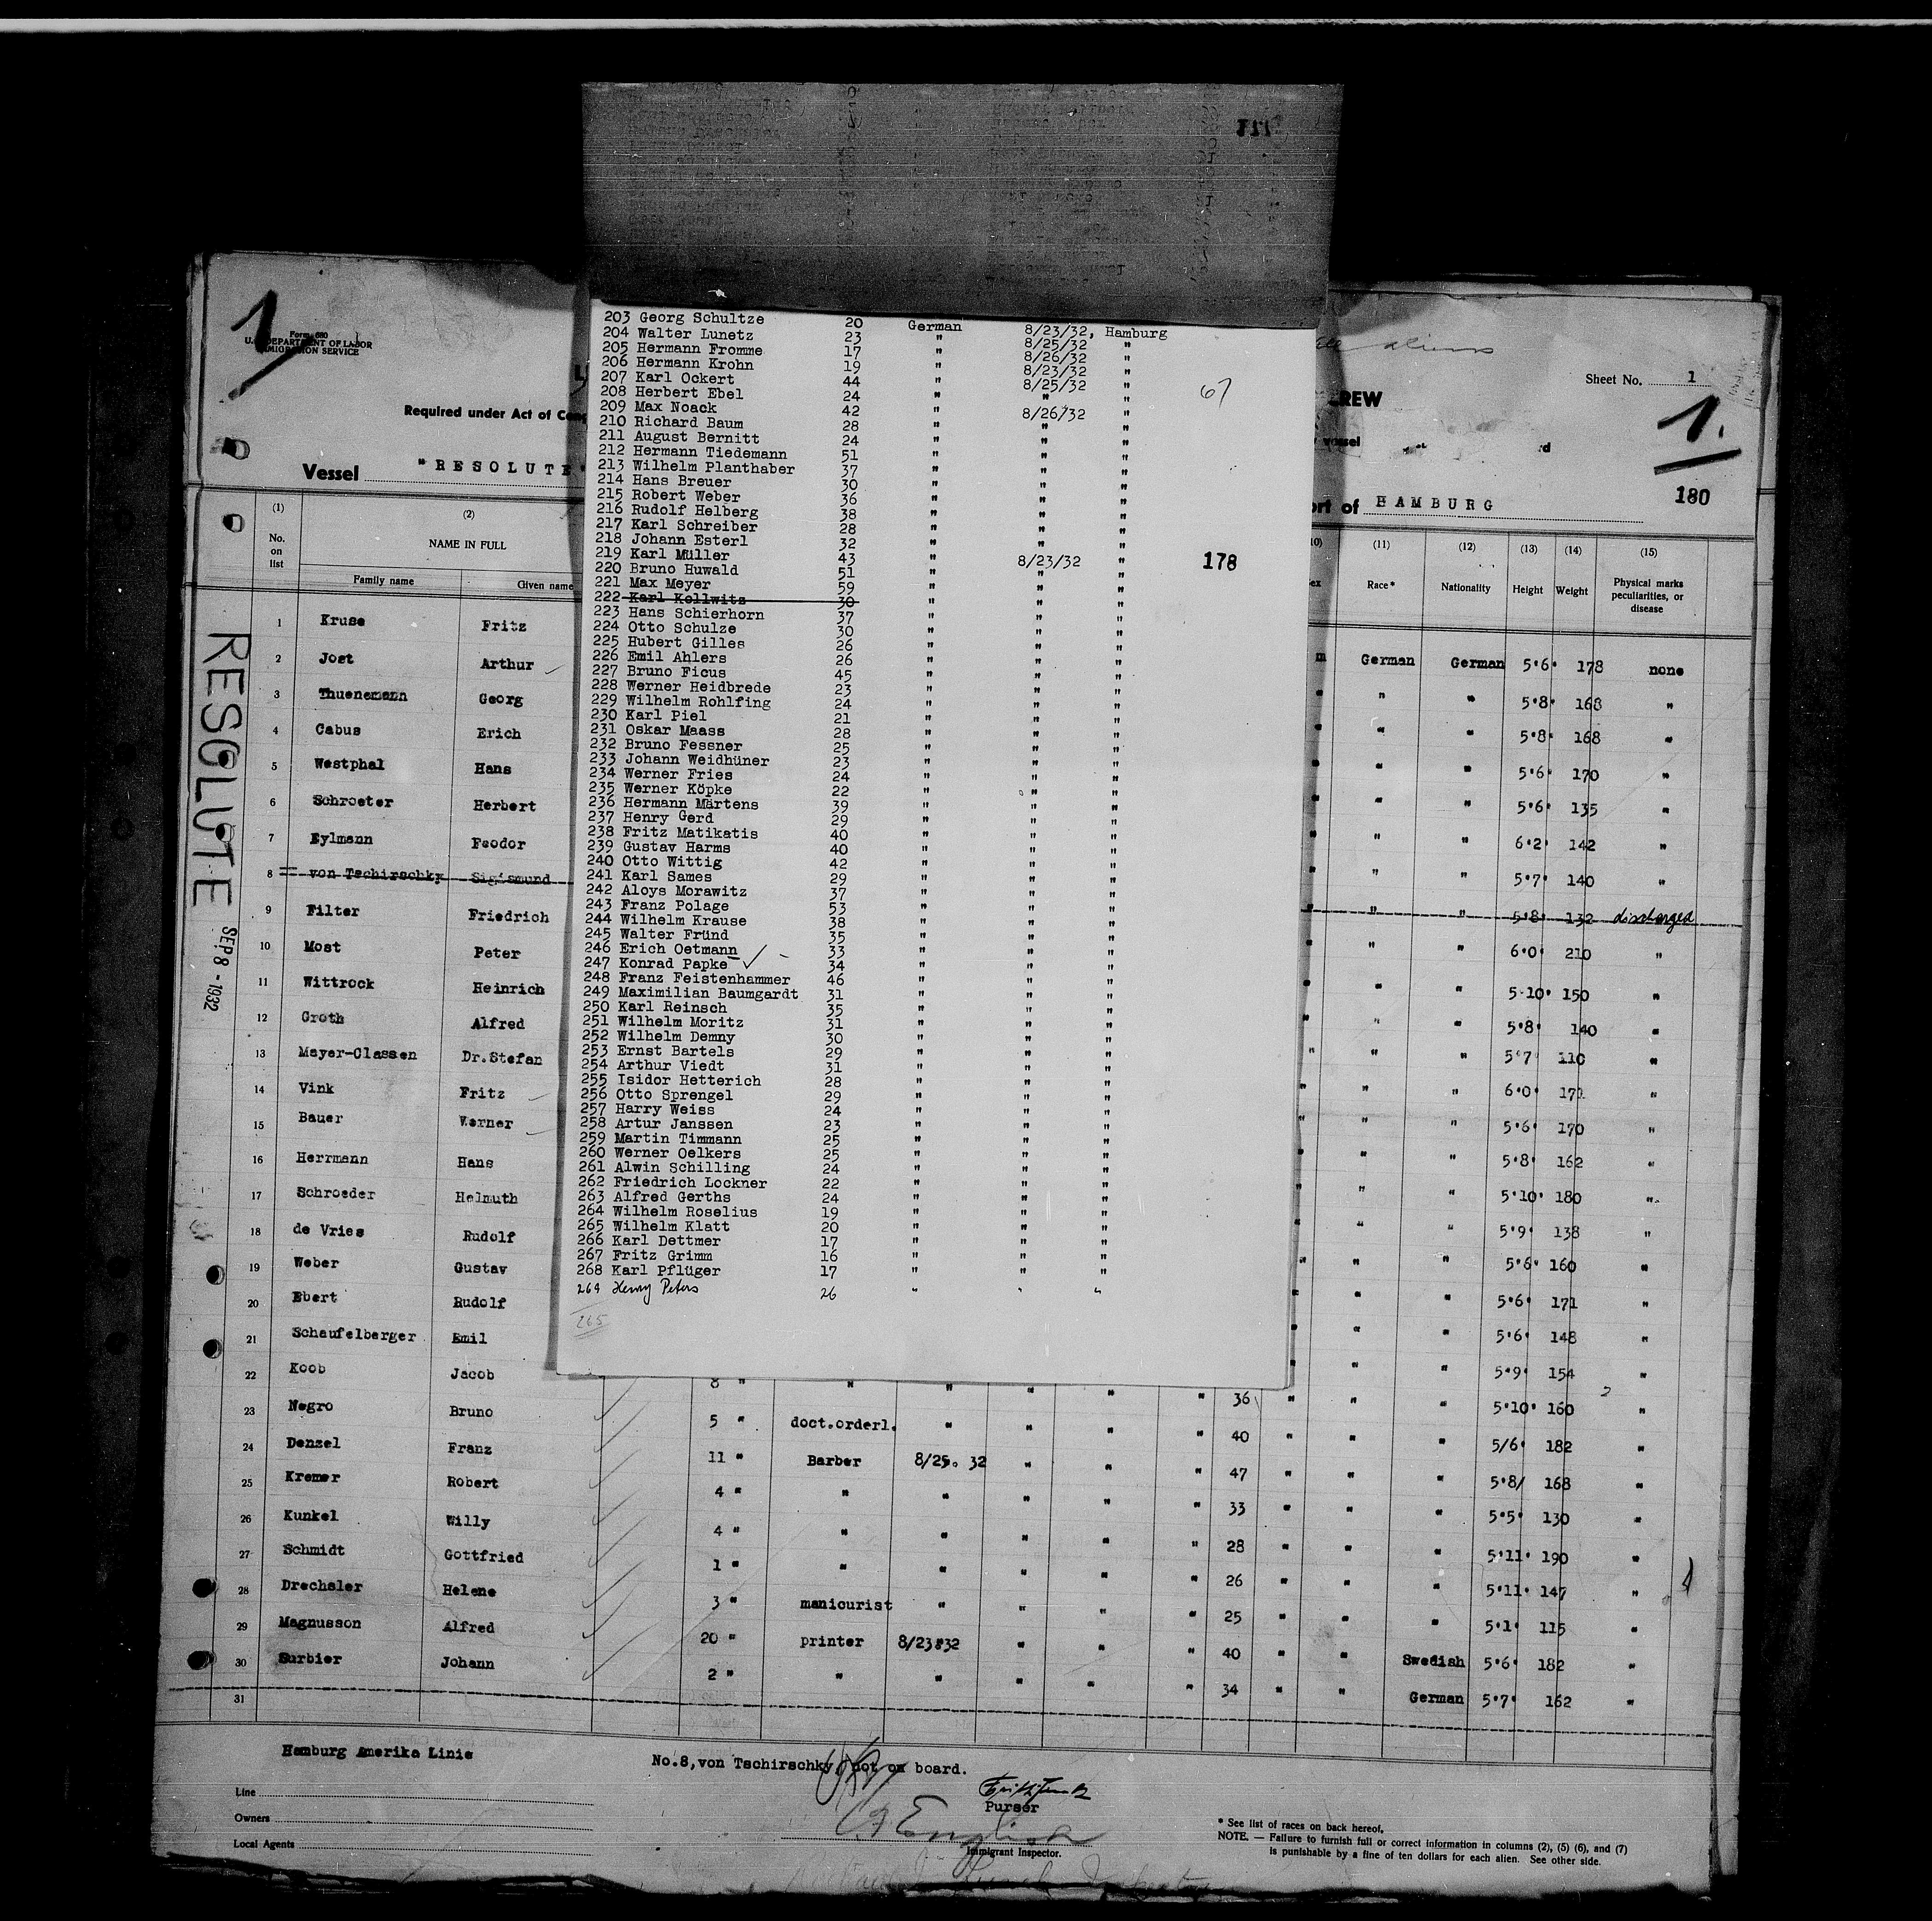 1
Form 680
U.S. DEPARTMENT OF LABOR
IMMIGRATION SERVICE
Required under Act of Cong
Vessel "RESOLUTE"
(1) (2)
No. on list
NAME IN FULL
Family name Given name
RESOLUTE
SEP 8 - 1932
203 Georg Schultze 20 German 8/23/32, Hamburg
204 Walter Lunetz 23 " 8/25/32 "
205 Hermann Fromme 17 " 8/26/32 "
206 Hermann Krohn 19 " 8/23/32 "
207 Karl Ockert 44 " 8/25/32 "
208 Herbert Ebel 24 " " "
209 Max Noack 42 " 8/26/32 "
210 Richard Baum 28 " " "
211 August Bernitt 24 " " "
212 Hermann Tiedemann 51 " " "
213 Wilhelm Planthaber 37 " " "
214 Hans Breuer 30 " " "
215 Robert Weber 36 " " "
216 Rudolf Helberg 38 " " "
217 Karl Schreiber 28 " " "
218 Johann Esterl 32 " " "
219 Karl Müller 43 " 8/23/32 "
220 Bruno Huwald 51 " " "
221 Max Meyer 59 " " "
222 Karl Kellwitz 30 " " "
223 Hans Schierhorn 37 " " "
224 Otto Schulze 30 " " "
225 Hubert Gilles 26 " " "
226 Emil Ahlers 26 " " "
227 Bruno Ficus 45 " " "
228 Werner Heidbrede 23 " " "
229 Wilhelm Rohlfing 24 " " "
230 Karl Piel 21 " " "
231 Oskar Maass 28 " " "
232 Bruno Fessner 25 " " "
233 Johann Weidhüner 23 " " "
234 Werner Fries 24 " " "
235 Werner Köpke 22 " " "
236 Hermann Märtens 39 " " "
237 Henry Gerd 29 " " "
238 Fritz Matikatis 40 " " "
239 Gustav Harms 40 " " "
240 Otto Wittig 42 " " "
241 Karl Sames 29 " " "
242 Aloys Morawitz 37 " " "
243 Franz Polage 53 " " "
244 Wilhelm Krause 38 " " "
245 Walter Fründ 35 " " "
246 Erich Oetmann 33 " " "
247 Konrad Papke 34 " " "
248 Franz Feistenhammer 46 " " "
249 Maximilian Baumgardt 31 " " "
250 Karl Reinsch 35 " " "
251 Wilhelm Moritz 31 " " "
252 Wilhelm Demny 30 " " "
253 Ernst Bartels 29 " " "
254 Arthur Viedt 31 " " "
255 Isidor Hetterich 28 " " "
256 Otto Sprengel 29 " " "
257 Harry Weiss 24 " " "
258 Artur Janssen 23 " " "
259 Martin Timmann 25 " " "
260 Werner Oelkers 25 " " "
261 Alwin Schilling 24 " " "
262 Friedrich Lockner 22 " " "
263 Alfred Gerths 24 " " "
264 Wilhelm Roselius 19 " " "
265 Wilhelm Klatt 20 " " "
266 Karl Dettmer 17 " " "
267 Fritz Grimm 16 " " "
268 Karl Pflüger 17 " " "
269 Henry Peters 26 " " "
265
67
178
aliens
Sheet No. 1
REW
vessel
1.
180
ort of HAMBURG
(11) (12) (13) (14) (15)
Race* Nationality Height Weight Physical marks peculiarities, or disease
1 Kruse Fritz m German German 5'6' 178 none
2 Jost Arthur " " " 5'8' 168 "
3 Thuenemann Georg " " " 5'8' 168 "
4 Cabus Erich " " " 5'6' 170 "
5 Westphal Hans " " " 5'6' 135 "
6 Schroeter Herbert " " " 6'2' 142 "
7 Eylmann Feodor " " " 5'7' 140 "
8 von Tschirschky Sigismund " " " 5'8' 132 discharged
9 Filter Friedrich " " " 6'0' 210 "
10 Most Peter " " " 5'10' 150 "
11 Wittrock Heinrich " " " 5'8' 140 "
12 Groth Alfred " " " 5'7' 110 "
13 Mayer-Classen Dr.Stefan " " " 6'0' 171 "
14 Vink Fritz " " " 5'6' 170 "
15 Bauer Werner " " " 5'8' 162 "
16 Herrmann Hans " " " 5'10' 180 "
17 Schroeder Helmuth " " " 5'9' 138 "
18 de Vries Rudolf " " " 5'6' 160 "
19 Weber Gustav " " " 5'6' 171 "
20 Ebert Rudolf " " " 5'6' 148 "
21 Schaufelberger Emil " " " 5'9' 154 "
22 Koob Jacob 8 " " " " " " 36 " " " 5'10' 160 "
23 Negro Bruno 5 " doct.orderl. " " " " 40 " " " 5/6' 182 "
24 Denzel Franz 11 " Barber 8/25. 32 " " " 47 " " " 5'8/ 168 "
25 Kremer Robert 4 " " " " " " 33 " " " 5'5' 130 "
26 Kunkel Willy 4 " " " " " " 28 " " " 5'11' 190 "
27 Schmidt Gottfried 1 " " " " " " 26 " " " 5'11' 147 "
28 Drechsler Helene 3 " manicurist " " " " 25 " " " 5'1' 115 "
29 Magnusson Alfred 20 " printer 8/23'32 " " " 40 " " Swedish 5'6' 182 "
30 Surbier Johann 2 " " " " " " 34 " " German 5'7' 162 "
31
Hamburg Amerika Linie
No.8,von Tschirschky, not on board.
Purser
Line
Owners
Local Agents
English
Immigrant Inspector.
* See list of races on back hereof.
NOTE. — Failure to furnish full or correct information in columns (2), (5) (6), and (7)
is punishable by a fine of ten dollars for each alien. See other side.